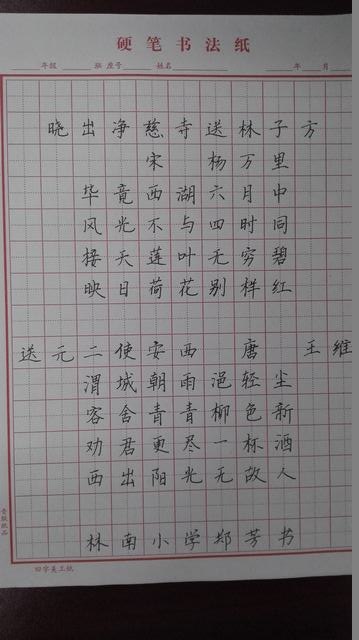 硬笔书法纸
年级 班 座号 姓名 年 月
晓出净慈寺送林子方
宋 杨万里
毕竟西湖六月中
风光不与四时同
接天莲叶无穷碧
映日荷花别样红
送元二使安西 唐 王维
渭城朝雨浥轻尘
客舍青青柳色新
劝君更尽一杯酒
西出阳光无故人
林南小学郑芳书
田字美工纸